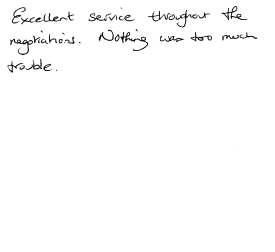 Excellent service throughout the
negotiations. Nothing was too much
trouble.